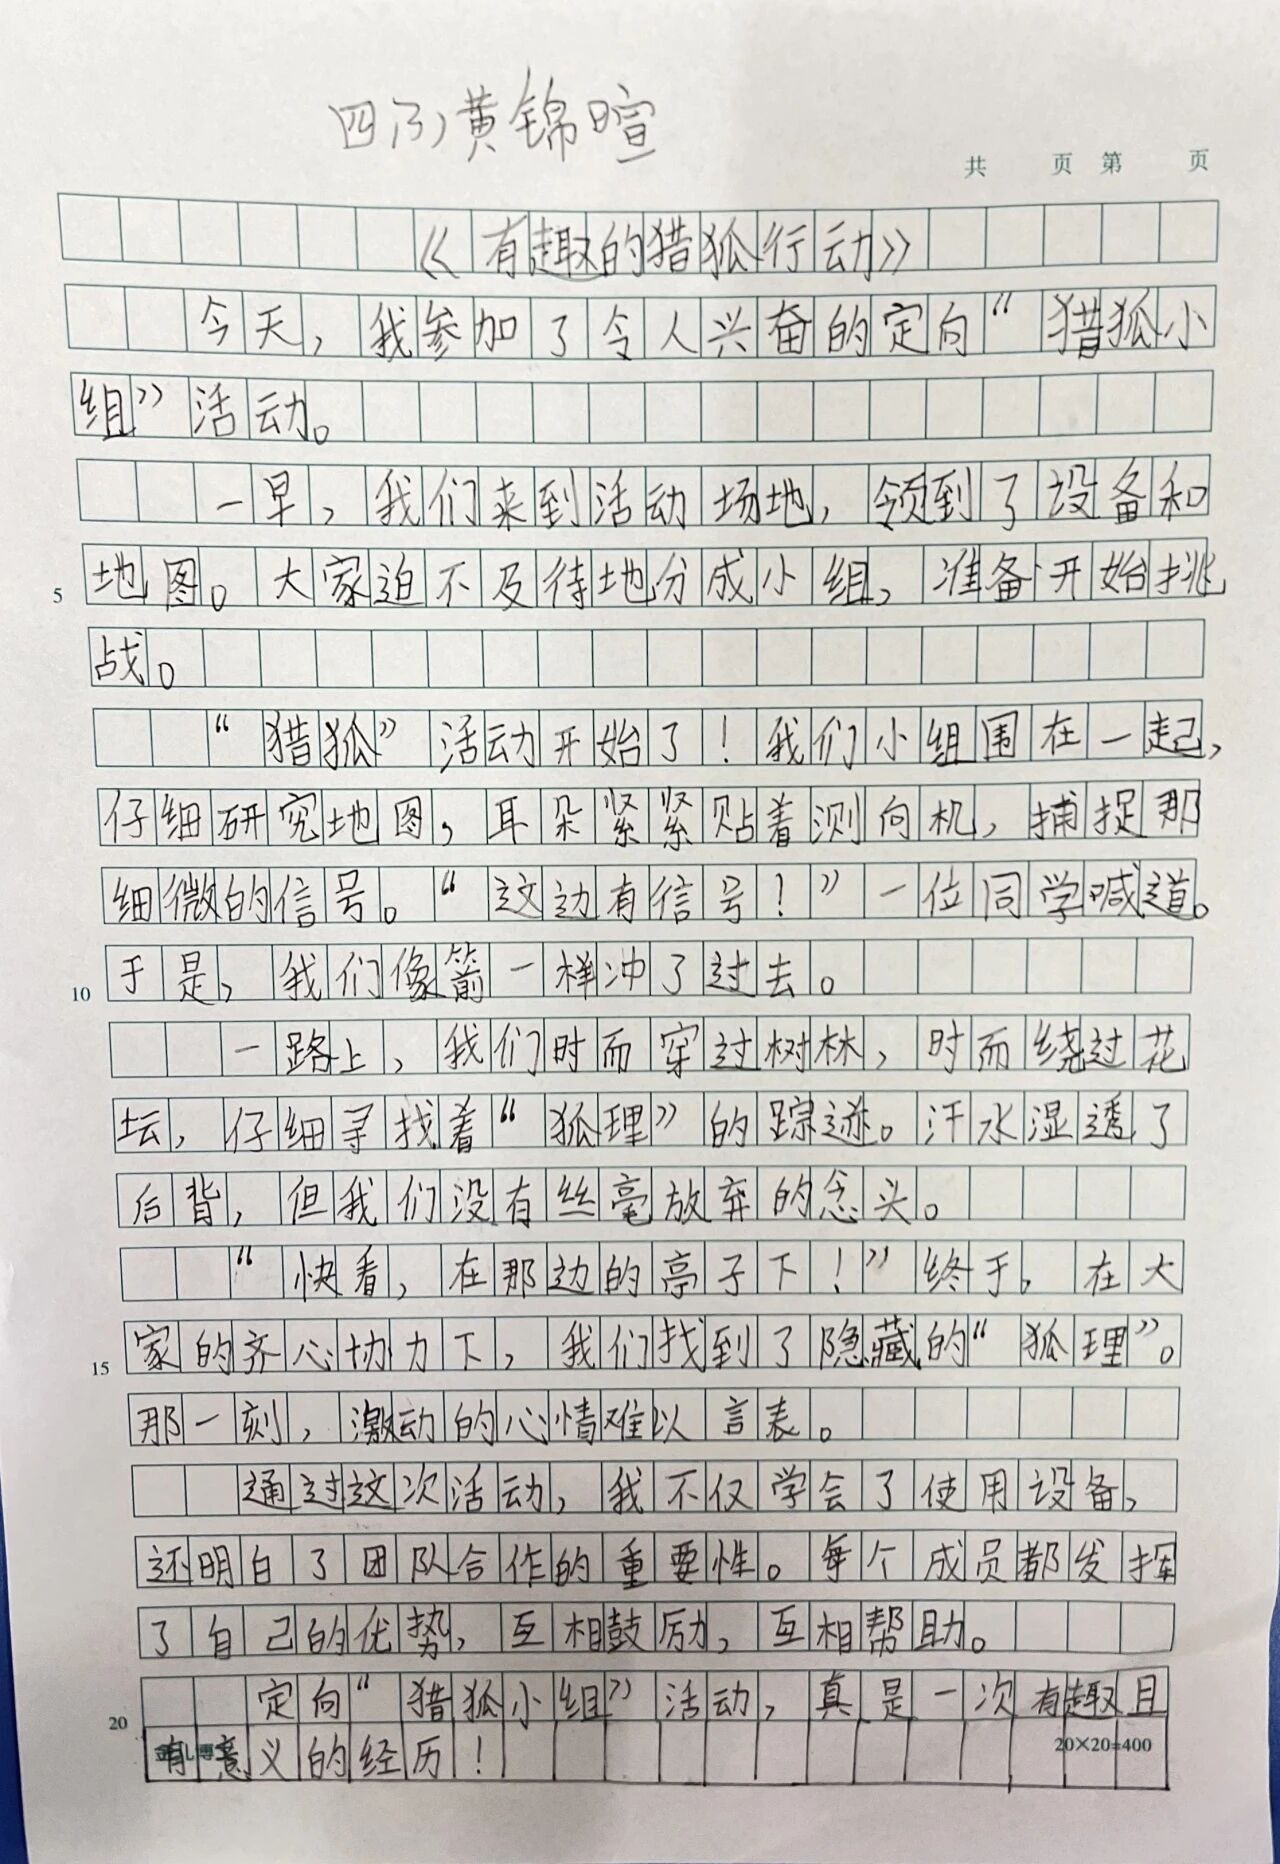 四(3)黄锦暄
共 页 第 页
《有趣的猎狐行动》
今天，我参加了令人兴奋的定向“猎狐小
组”活动。
一早，我们来到活动场地，领到了设备和
5 地图。大家迫不及待地分成小组，准备开始挑
战。
“猎狐”活动开始了！我们小组围在一起，
仔细研究地图，耳朵紧紧贴着测向机，捕捉那
细微的信号。“这边有信号！”一位同学喊道。
10 于是，我们像箭一样冲了过去。
一路上，我们时而穿过树林，时而绕过花
坛，仔细寻找着“狐理”的踪迹。汗水湿透了
后背，但我们没有丝毫放弃的念头。
“快看，在那边的亭子下！”终于。在大
15 家的齐心协力下，我们找到了隐藏的“狐理”。
那一刻，激动的心情难以言表。
通过这次活动，我不仅学会了使用设备，
还明白了团队合作的重要性。每个成员都发挥
了自己的优势，互相鼓励，互相帮助。
20 定向“猎狐小组”活动，真是一次有趣且
有意义的经历！
20×20=400